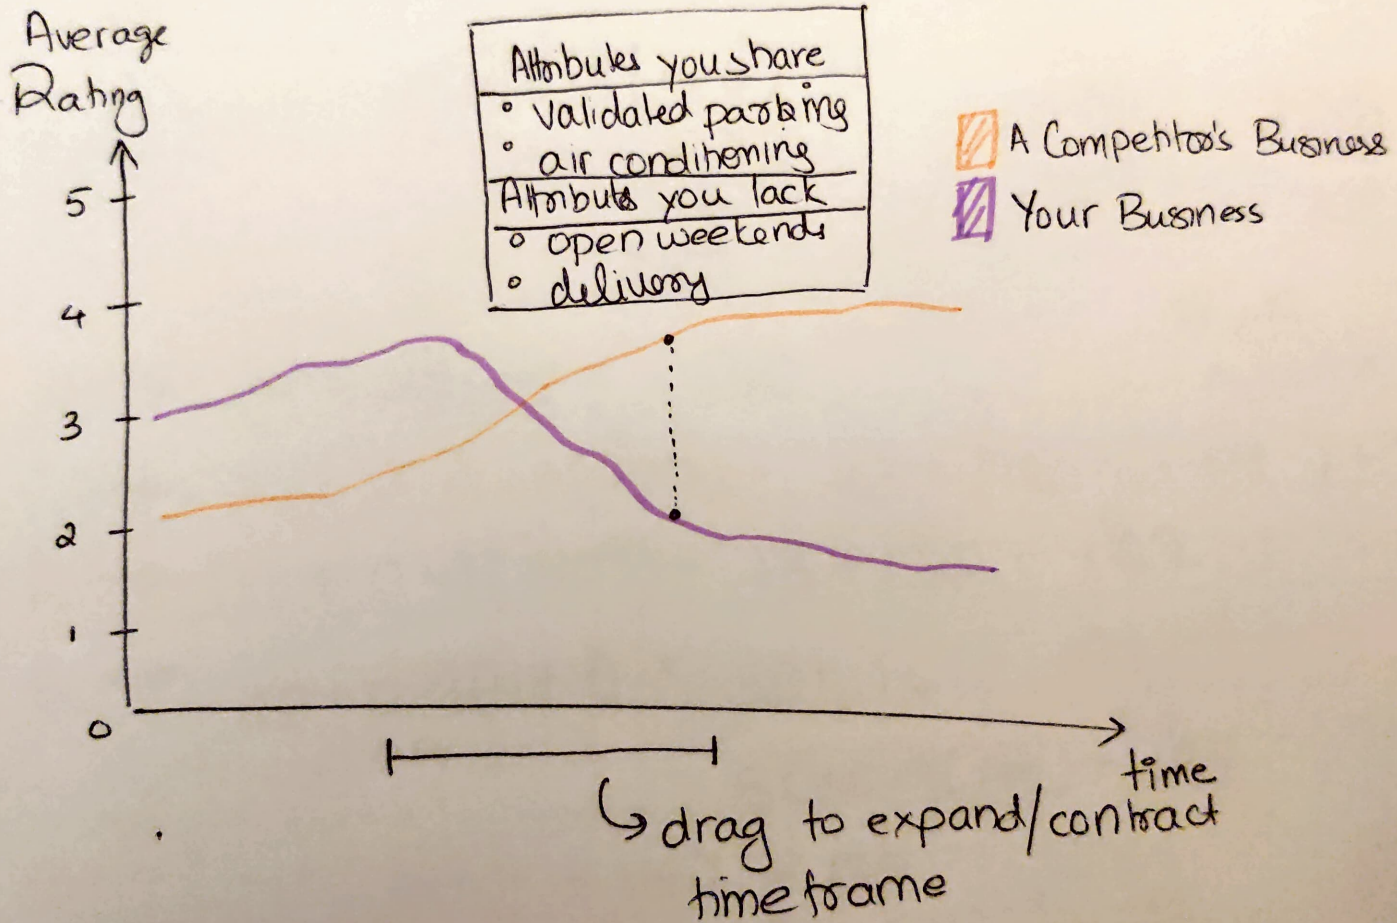 Average
Rating
5
4
3
2
1
0
Attributes you share
° validated parking
° air conditioning
Attributes you lack
° open weekends
° delivery
A Competitor's Business
Your Business
time
drag to expand/contract
timeframe